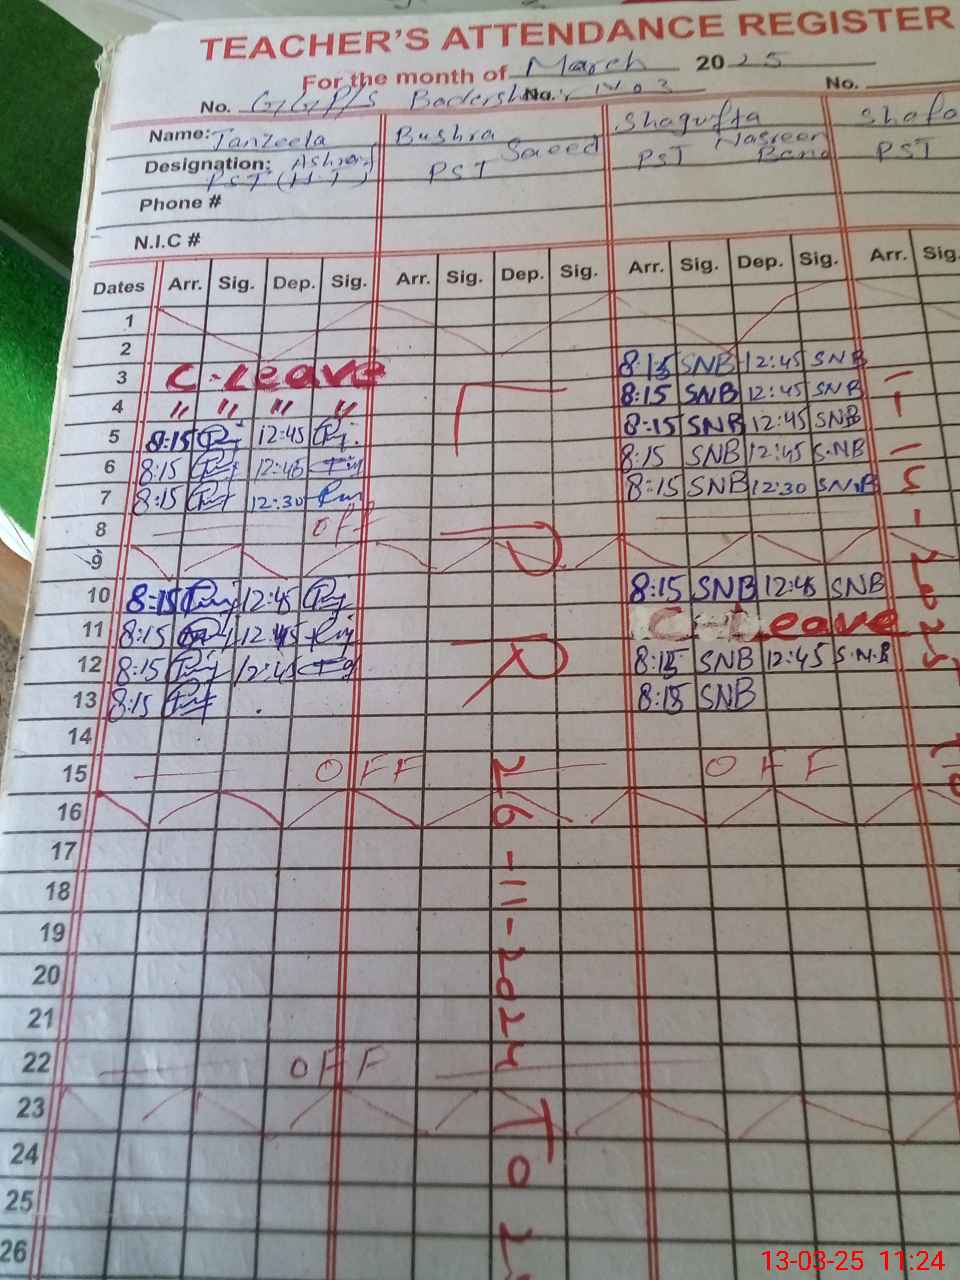 TEACHER'S ATTENDANCE REGISTER
For the month of March 2025
No. GGP/S No. No 3 No.
Name: Tanzeela Bushra Shagufta
Designation: Ashraf Saeed Nasreen Bano
PST (HT) PST PST PST
Phone #
N.I.C #
Dates Arr. Sig. Dep. Sig. Arr. Sig. Dep. Sig. Arr. Sig. Dep. Sig. Arr. Sig.
1
2
3 C-Leave 8:15 SNB 12:45 SNB
4 " " " " 8:15 SNB 12:45 SNB
5 8:15 12:45 8:15 SNB 12:45 SNB
6 8:15 12:45 8:15 SNB 12:45 S.NB
7 8:15 12:30 8:15 SNB 12:30 SNB
8 OFF
9
10 8:15 12:45 8:15 SNB 12:45 SNB
11 8:15 12:45 C-Leave
12 8:15 12:45 8:15 SNB 12:45 S.N.B
13 8:15 8:15 SNB
14
15 OFF OFF
16
17
18
19
20
21
22 OFF
23
24
25
26
26-11-2024 To 2
13-03-25 11:24